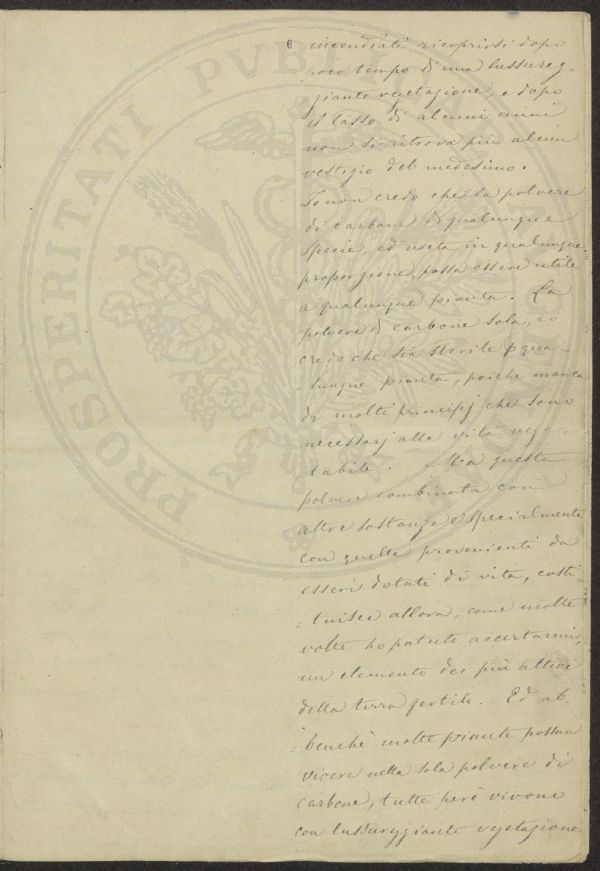 PROSPERITATI PUBLICAE
6
incendiati ricoprirsi dopo
poco tempo di una lussureg-
giante vegetazione, e dopo
il lasso di alcuni anni
non si ritrova più alcun
vestigio del medesimo.
Io non credo che la polvere
di carbone di qualunque
specie, ed usata in qualunque
proporzione, possa essere utile
a qualunque pianta. La
polvere di carbone sola, io
credo che sia sterile p qua-
-lunque pianta, poiche manca
di molti principj che sono
necessarj alla vita vege-
tabile. Ma questa
polvere combinata con
altre sostanze e specialmente
con quelle provenienti da
esseri dotati di vita, costi-
-tuisce allora, come molte
volte ho potuto accertarmi,
un elemento dei più attivi
della terra fertile. Ed ab-
-benchè molte piante possan
vivere nella sola polvere di
carbone, tutte però vivono
con lussureggiante vegetazione